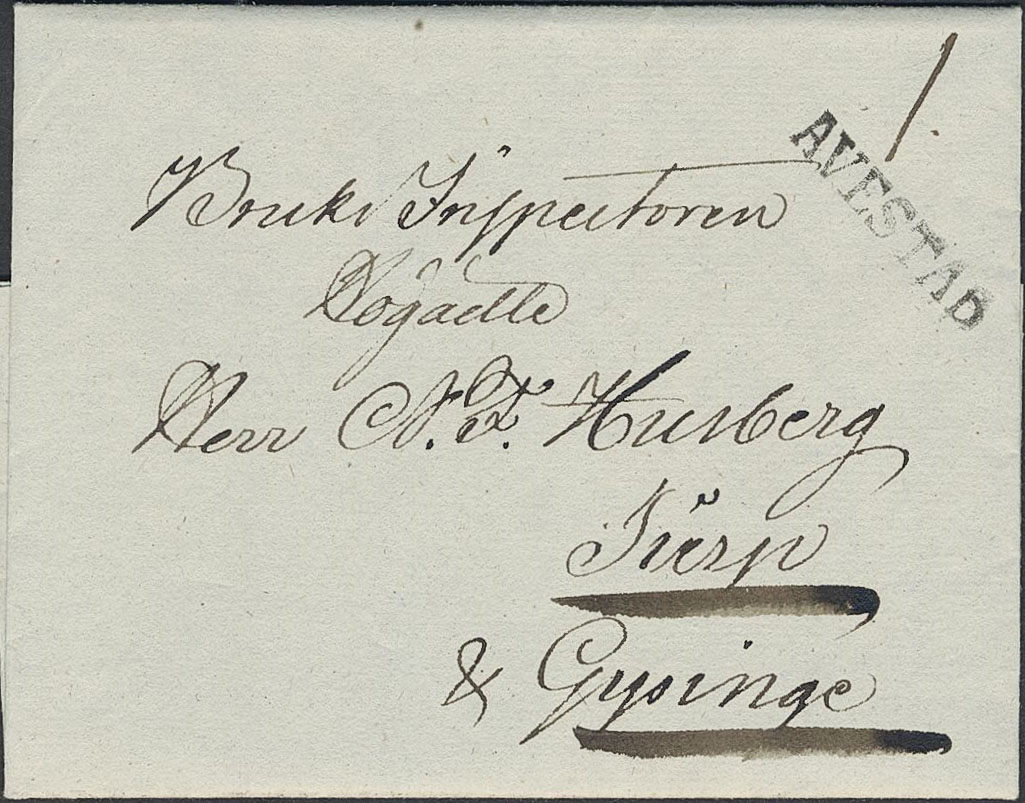 1.
AVESTAD
Bruks Inspectoren
Högädle
Herr N. F. Husberg
Tierp
& Gysinge